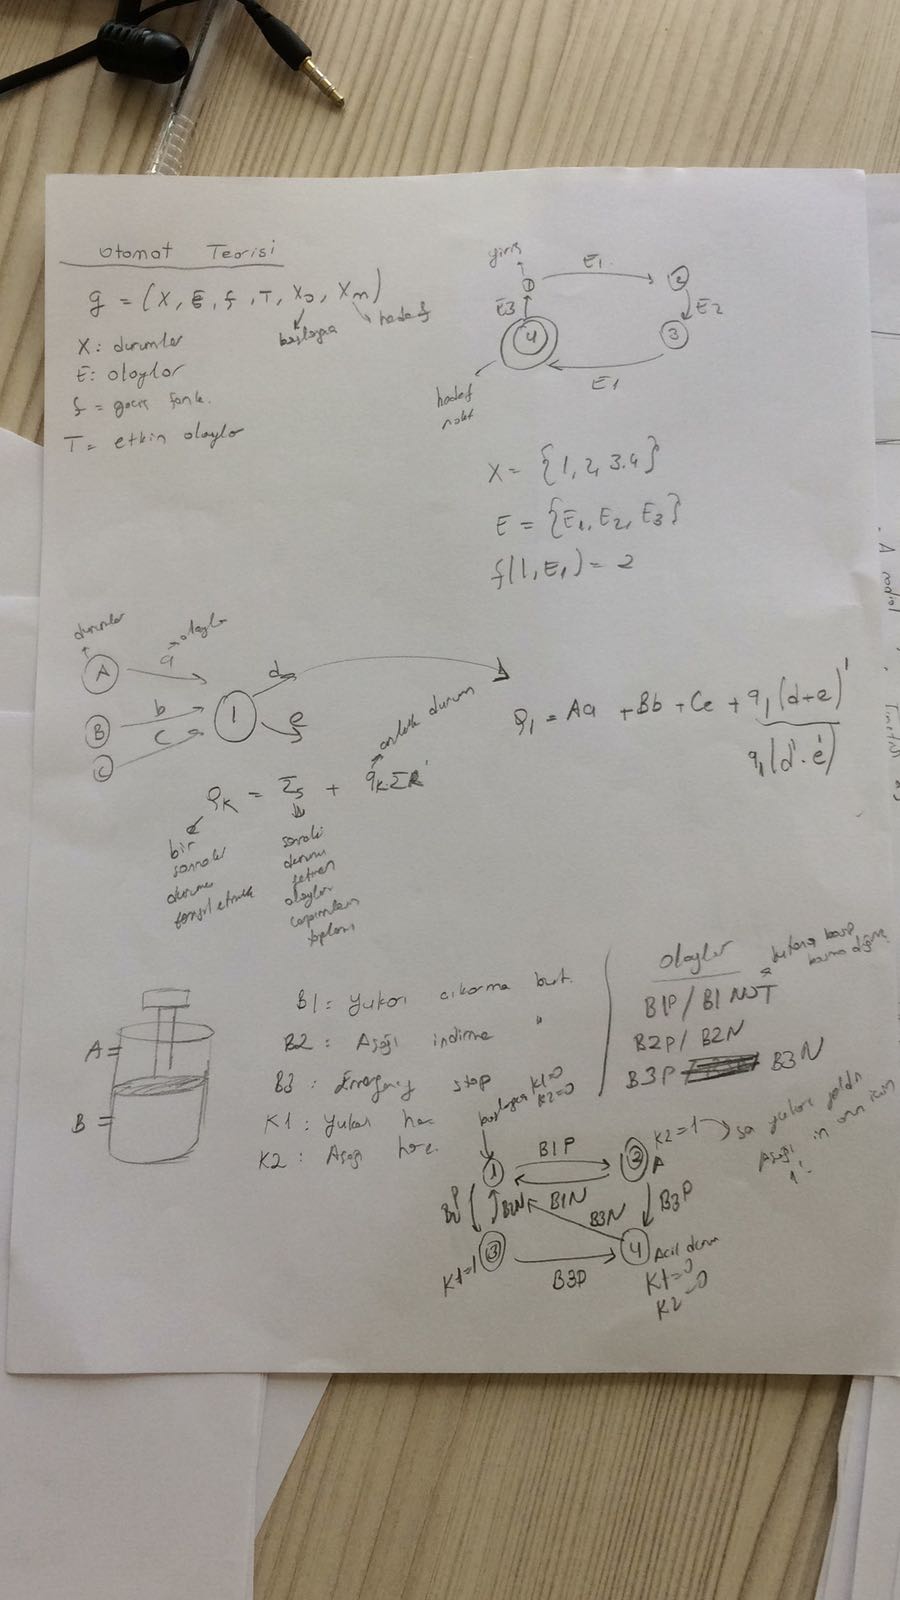 Otomat Teorisi
g = (X, E, f, T, X0, Xm)
başlangıç
hedef
X: durumlar
E: olaylar
f = geçiş fonk.
T = etkin olaylar
giriş
1
E1
2
E2
3
E1
4
E3
hedef
nokt
X = {1, 2, 3.4}
E = {E1, E2, E3}
f(1, E1) = 2
durumlar
olaylar
A
a
B
b
C
c
1
d
e
Q1 = Aa + Bb + Cc + q1(d+e)'
q1(d'.e')
QK = Σs + qKΣR'
anlık durum
bir
sonraki
durumu
temsil etmek
sonraki
durumu
getiren
olaylar
çarpımların
toplamı
A=
B=
B1 = Yukarı çıkarma but.
B2 : Aşağı indirme "
B3 : Emergency stop
K1 : Yukarı har
K2 : Aşağı hare.
Olaylar
B1P / B1NOT
butona basıp
B2P / B2N
B3P B3N
başlangıç K1=0
K2=0
1
B1P
B1N
2
A
K2=1
yukarı
aşağı in onun için
1
B2N
B3N
B3P
3
K1=1
B3P
4
Acil durum
K1=0
K2=0